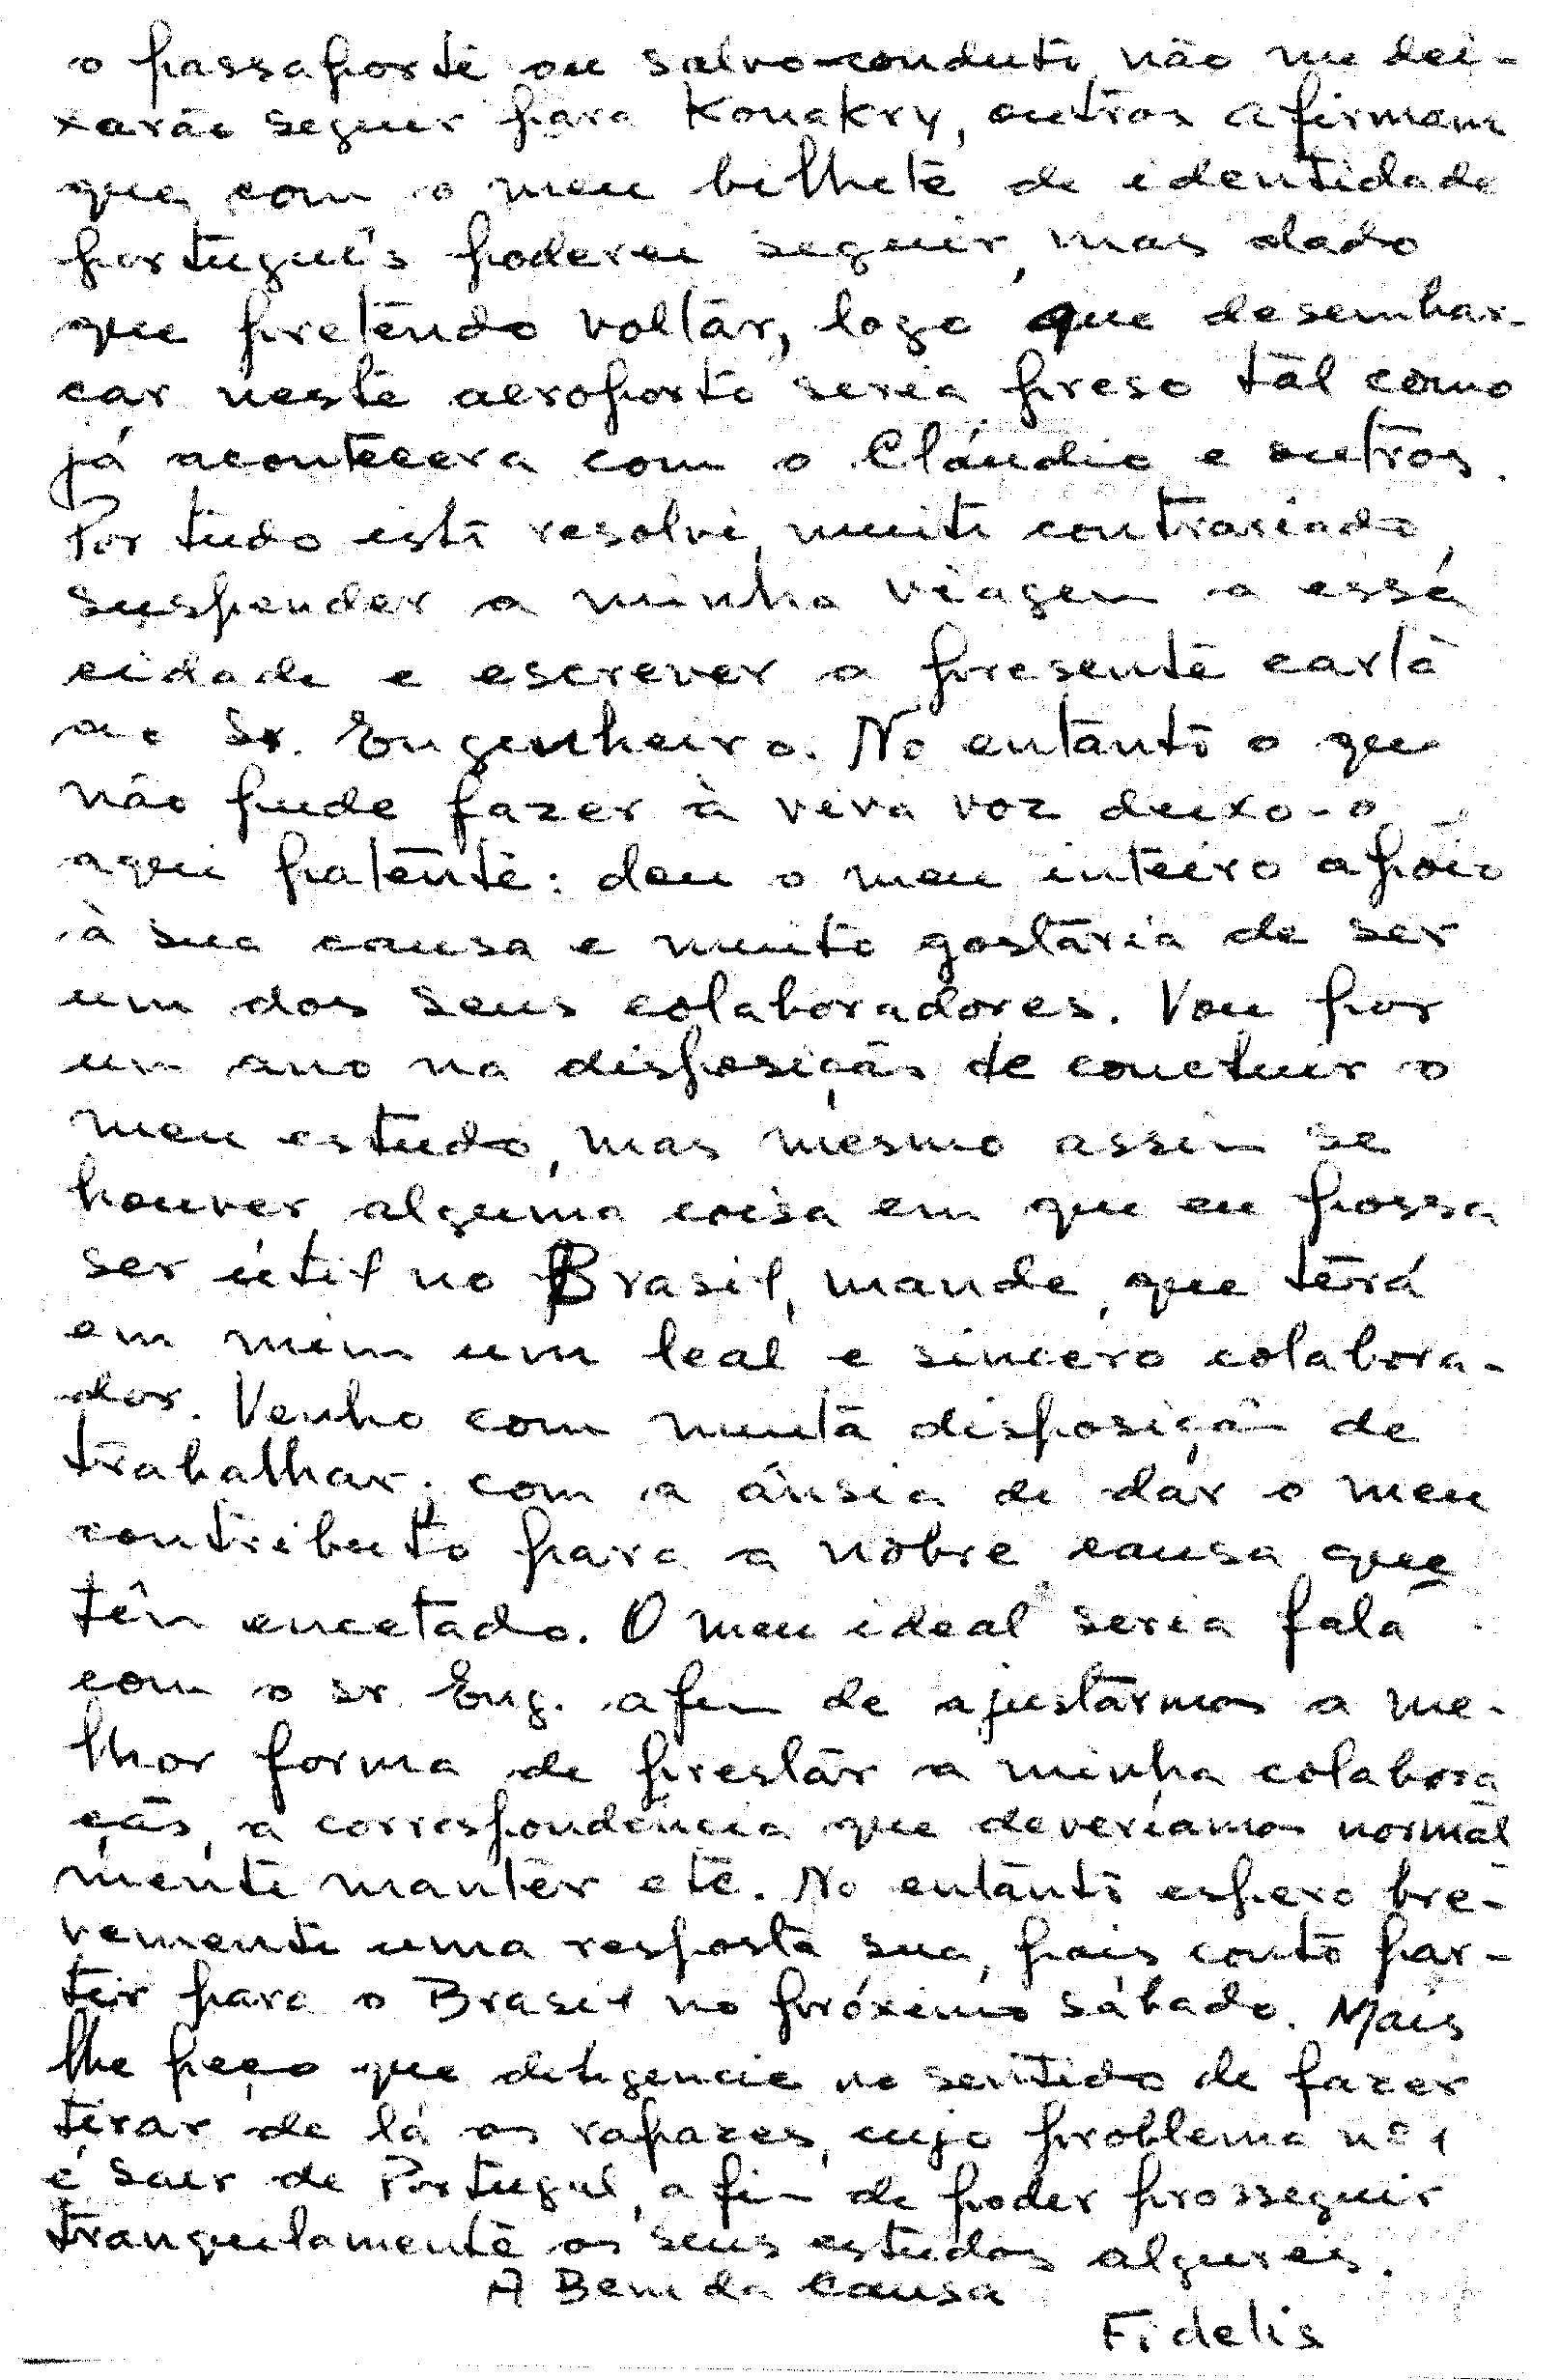 o passaporte ou salvo-conduto, não me dei-
xarão seguir para Konakry, outros afirmam
que, com o meu bilhete de identidade
português poderei seguir, mas dado
que pretendo voltar, logo que desembar-
car neste aeroporto seria preso tal como
já acontecera com o Cláudio e outros.
Por tudo isto resolvi, muito contrariado,
suspender a minha viagem a essa
cidade e escrever a presente carta
ao Sr. Engenheiro. No entanto o que
não pude fazer à viva voz deixo-o
aqui patente: dou o meu inteiro apoio
à sua causa e muito gostaria de ser
um dos seus colaboradores. Vou por
um ano na disposição de concluir o
meu estudo, mas mesmo assim se
houver alguma coisa em que eu possa
ser útil no Brasil, mande, que terá
em mim um leal e sincero colabora-
dor. Venho com muita disposição de
trabalhar; com a ânsia de dar o meu
contributo para a nobre causa que
têm encetado. O meu ideal seria fala
com o sr. Eng. afim de ajustarmos a me-
lhor forma de prestar a minha colabora
ção, a correspondência que deveríamos normal
mente manter etc. No entanto espero bre-
vemente uma resposta sua, pois conto par-
tir para o Brasil no próximo sábado. Mais
lhe peço que diligencie no sentido de fazer
tirar de lá os rapazes, cujo problema nº 1
é sair de Portugal, afim de poder prosseguir
tranquilamente os seus estudos algures.
A Bem da Causa
Fidelis